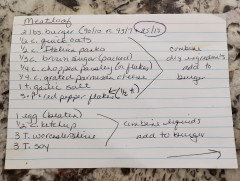 Meatloaf
2 lbs. burger (90/10 or 93/7) 85/15
1/2 c. quick oats
1/2 c. Italian panko
1/3 c. brown sugar (packed)
1/4 c. chopped parsley (or flakes)
1/4 c. grated parmesan cheese
1 t. garlic salt
red pepper flakes (1/2 t)
combine
dry ingredients
add to
burger
1 egg (beaten)
ketchup
3 T. worcestershire
3 T. soy
combine liquids
add to burger